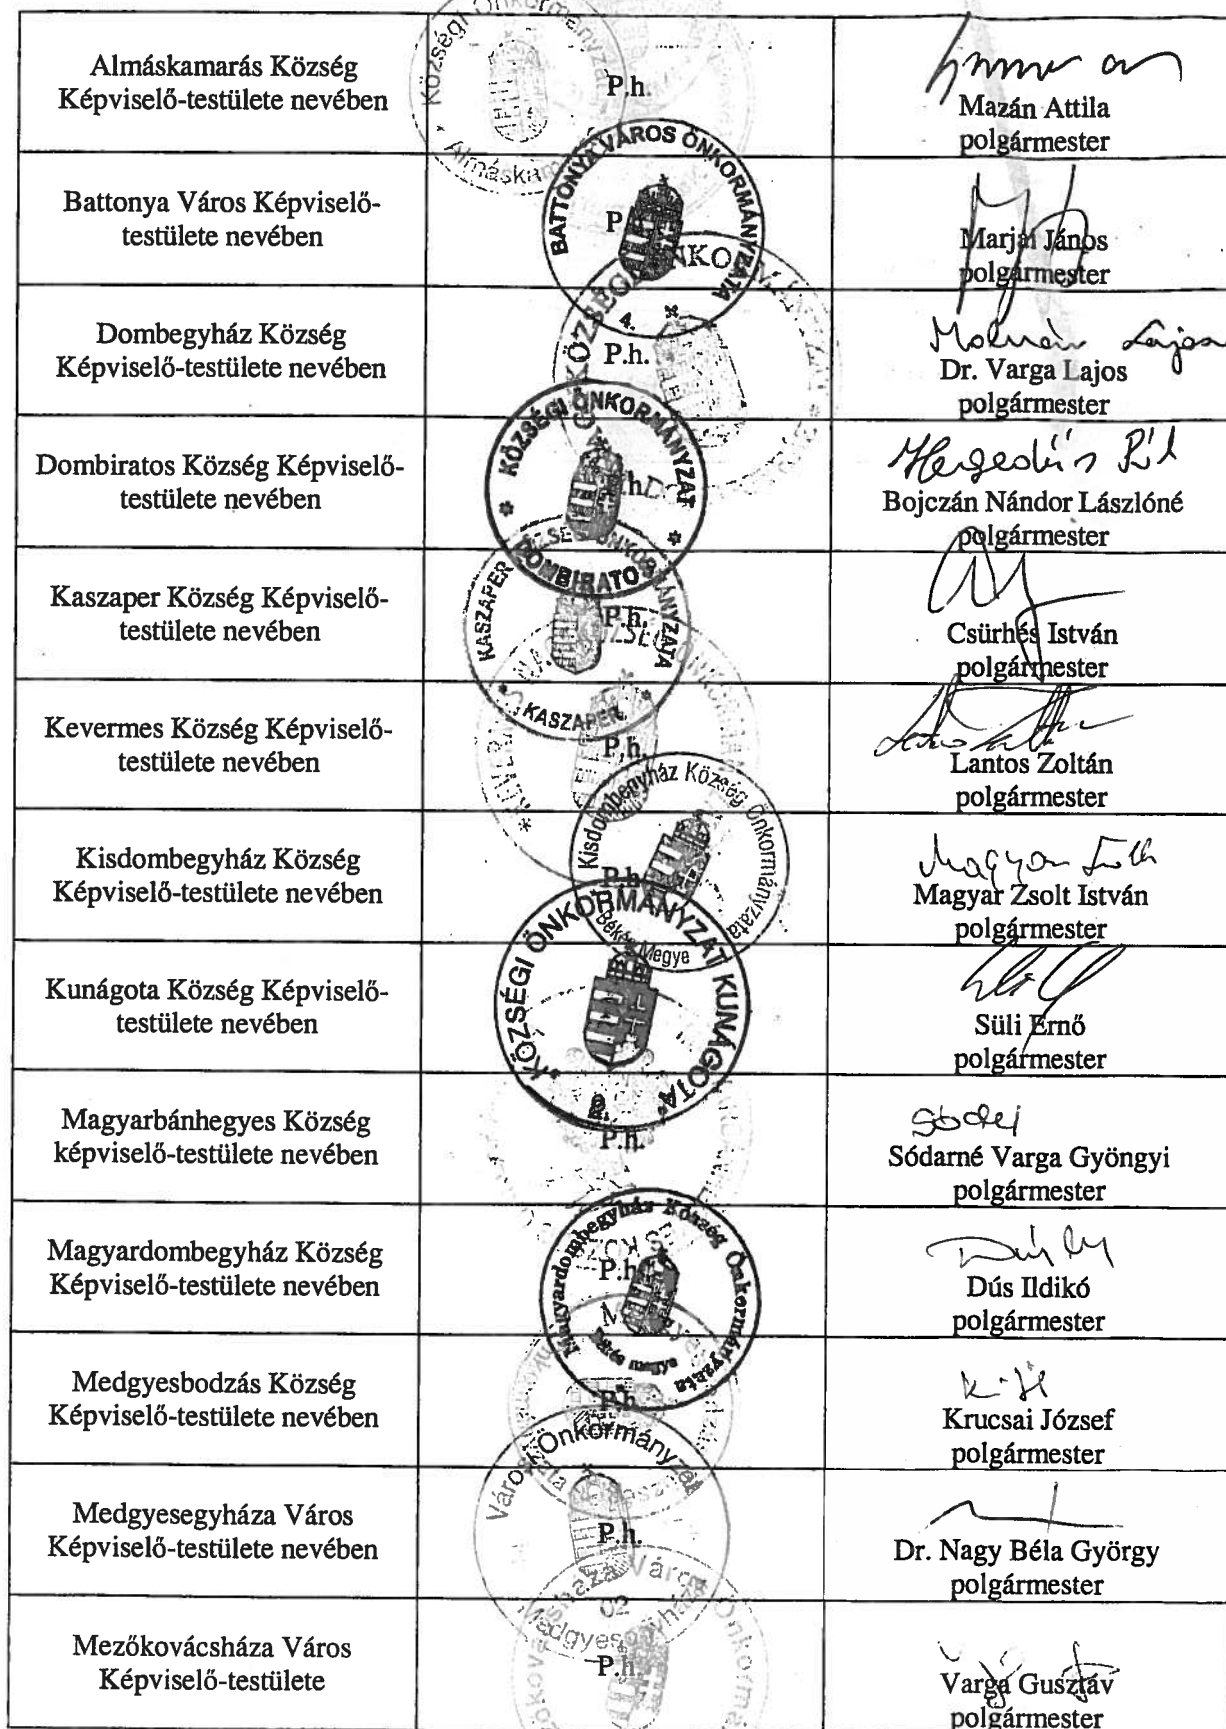 Almáskamarás Község
Képviselő-testülete nevében
P.h.
Mazán Attila
polgármester
Községi Önkormányzat
Almáskam
Battonya Város Képviselő-
testülete nevében
BATTONYA VÁROS ÖNKORMÁNYZATA
4.
Marjai János
polgármester
Dombegyház Község
Képviselő-testülete nevében
P.h.
Molnár Lajos
Dr. Varga Lajos
polgármester
Dombiratos Község Képviselő-
testülete nevében
KÖZSÉGI ÖNKORMÁNYZAT
DOMBIRATOS
Hegedűs Pál
Bojczán Nándor Lászlóné
polgármester
Kaszaper Község Képviselő-
testülete nevében
P.h.
KASZAPER KÖZSÉG ÖNKORMÁNYZATA
KASZAPER
Csürhés István
polgármester
Kevermes Község Képviselő-
testülete nevében
P.h.
Lantos Zoltán
polgármester
Kisdombegyház Község
Képviselő-testülete nevében
P.h.
Kisdombegyház Község Önkormányzata
Békés Megye
Magyar Zsolt
Magyar Zsolt István
polgármester
Kunágota Község Képviselő-
testülete nevében
"KÖZSÉGI ÖNKORMÁNYZAT KUNÁGOTA"
Süli Ernő
polgármester
Magyarbánhegyes Község
képviselő-testülete nevében
P.h.
Sódarné Varga Gyöngyi
polgármester
Magyardombegyház Község
Képviselő-testülete nevében
P.h.
Magyardombegyház Község Önkormányzata
Békés megye
Dús Ildikó
polgármester
Medgyesbodzás Község
Képviselő-testülete nevében
P.h.
Krucsai József
polgármester
Medgyesegyháza Város
Képviselő-testülete nevében
P.h.
Városi Önkormányzat
Medgyesegyháza
02
Dr. Nagy Béla György
polgármester
Mezőkovácsháza Város
Képviselő-testülete
P.h.
Varga Gusztáv
polgármester